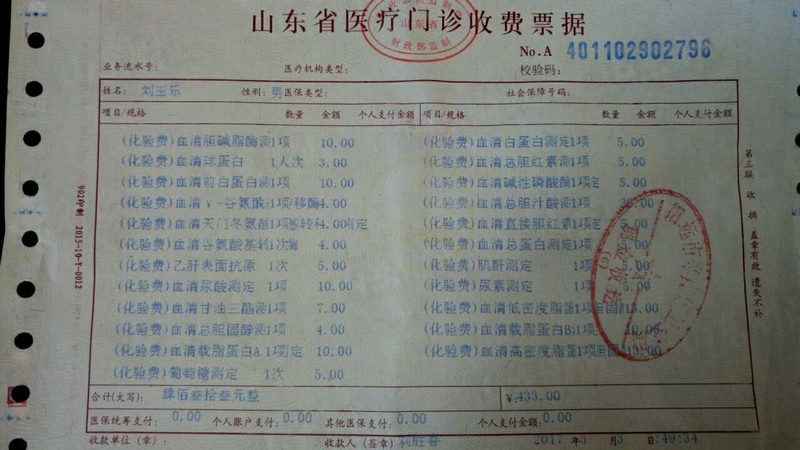 山东省医疗门诊收费票据
山东省
财政部监制
No.A 401102902796
业务流水号： 医疗机构类型： 校验码：
姓名： 刘玉乐 性别： 男 医保类型： 社会保障号码：
项目/规格 数量 金额 个人支付金额 项目/规格 数量 金额 个人支付金额
(化验费)血清胆碱脂酶测1项 10.00 (化验费)血清白蛋白测定1项 5.00
(化验费)血清球蛋白 1人次 3.00 (化验费)血清总胆红素测1项 5.00
(化验费)血清前白蛋白测1项 10.00 (化验费)血清碱性磷酸酶1项定 5.00
(化验费)血清γ-谷氨酰1项移酶4.00 (化验费)血清总胆汁酸测1项
(化验费)血清天门冬氨酸1项基转移4.00测定 (化验费)血清直接胆红素1项 5.00
(化验费)血清谷氨酸基转1次酶 4.00 (化验费)血清总蛋白测定1项
(化验费)乙肝表面抗原 1次 5.00 (化验费)肌酐测定 1项
(化验费)血清尿酸测定 1项 10.00 (化验费)尿素测定 1项 5.00
(化验费)血清甘油三酯测1项 7.00 (化验费)血清低密度脂蛋1项胆固13.00
(化验费)血清总胆固醇测1项 4.00 (化验费)血清载脂蛋白B:1项 10.00
(化验费)血清载脂蛋白A 1项定 10.00 (化验费)血清高密度脂蛋1项胆固13.00
(化验费)葡萄糖测定 1次 5.00
合计(大写)： 肆佰叁拾叁元整 ¥:433.00
医保统筹支付： 0.00 个人账户支付：0.00 其他医保支付：0.00 个人支付金额：0.00
收款单位（章）： 收款人（签章） 2017 年5 月3 日:49:34
第三联 收据 盖章有效 遗失不补
902印制 2015-10-Y-0012